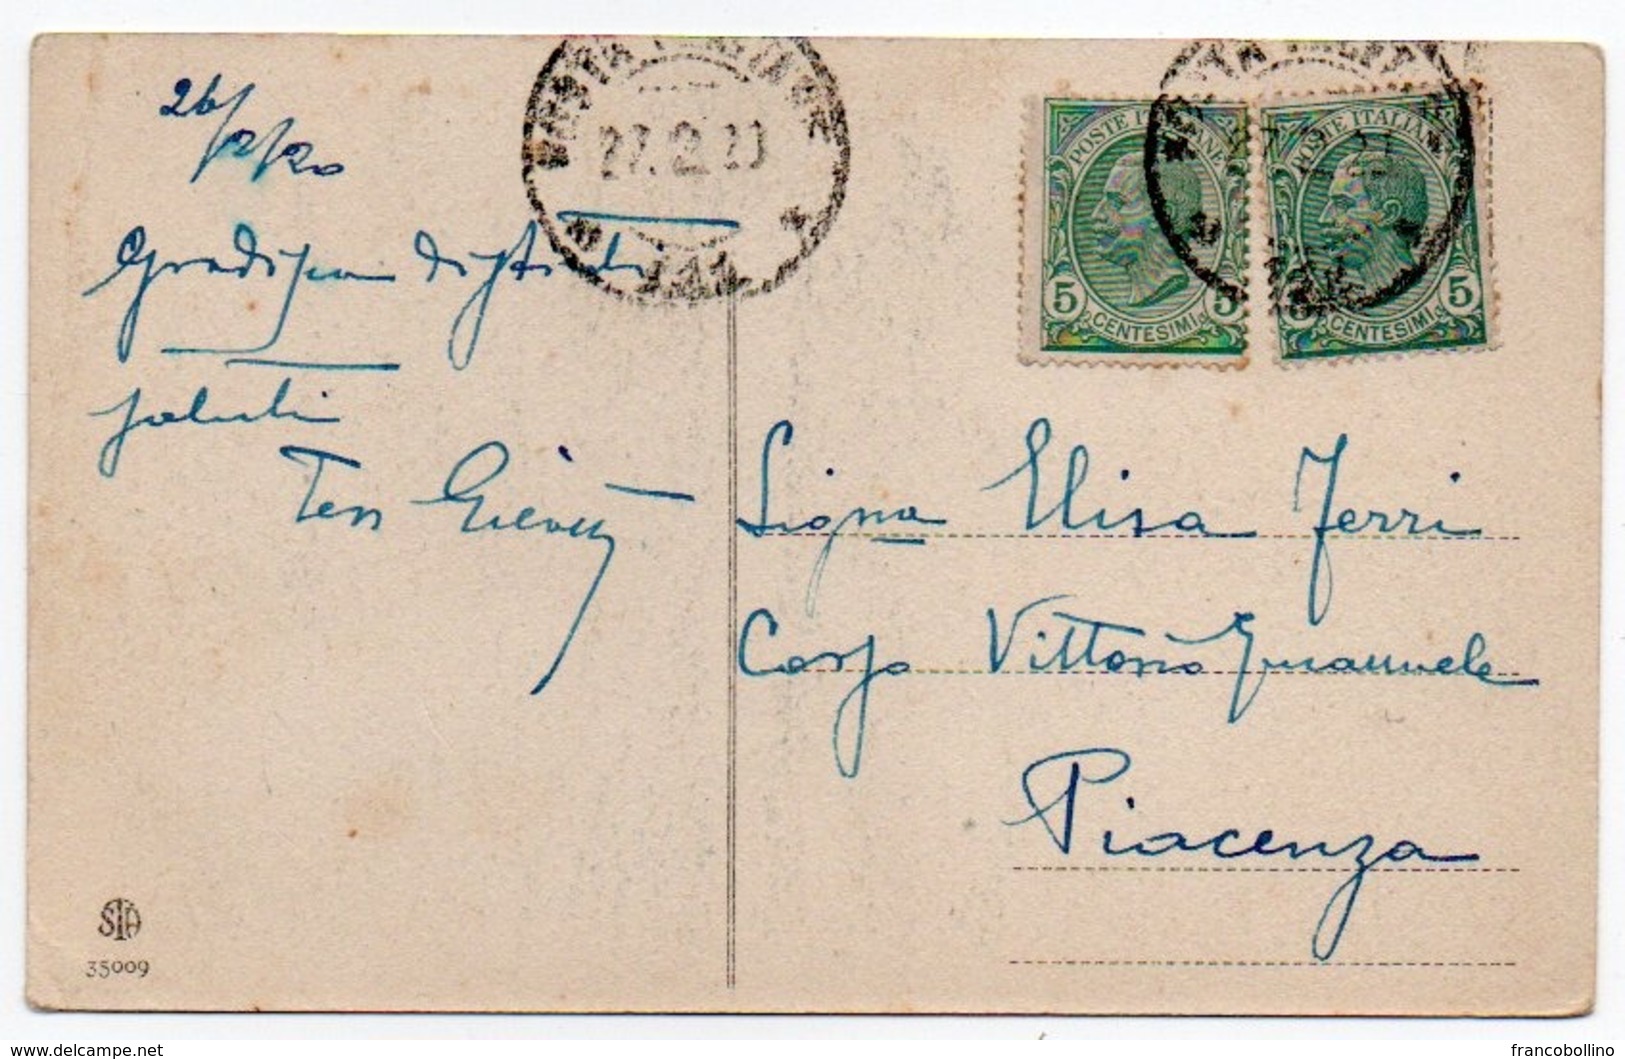 26/2/20
Gradisca distinti
saluti
Ten
POSTE ITALIANE
27.2.20
POSTE ITALIANE
5 5
CENTESIMI
POSTE ITALIANE
5
CENTESIMI
Signa Elisa Ferri
Corso Vittorio Emanuele
Piacenza
STA
35009
www.delcampe.net
francobollino